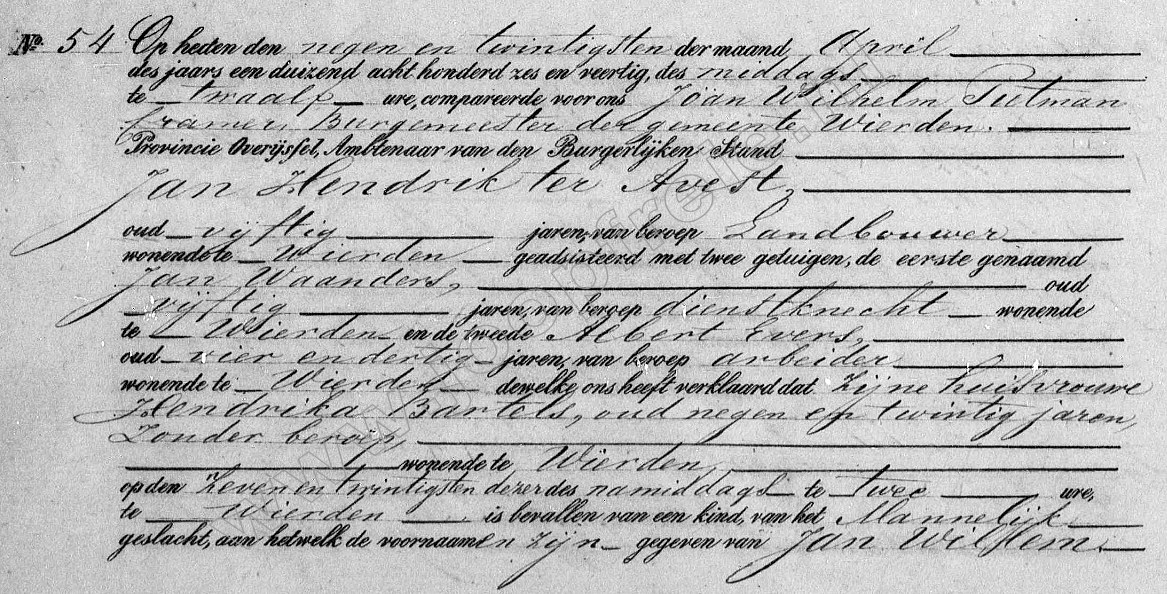 No. 54 Op heden den negen en twintigsten der maand April
des jaars een duizend acht honderd zes en veertig, des middags
te twaalf ure, compareerde voor ons Joan Wilhelm Putman
Cramer, Burgemeester der gemeente Wierden.
Provincie Overijssel, Ambtenaar van den Burgerlijken Stand
Jan Hendrik ter Avest,
oud vijftig jaren, van beroep Landbouwer
wonende te Wierden geadsisteerd met twee getuigen, de eerste genaamd
Jan Waanders, oud
vijftig jaren, van beroep dienstknecht wonende
te Wierden en de tweede Albert Evers,
oud vier en dertig jaren, van beroep arbeider
wonende te Wierden dewelke ons heeft verklaard dat zijne huisvrouwe
Hendrika Bartels, oud negen en twintig jaren,
zonder beroep,
wonende te Wierden,
op den zeven en twintigsten dezer des namiddags te twee ure,
te Wierden is bevallen van een kind, van het Mannelijk
geslacht, aan hetwelk de voornaamen zijn gegeven van Jan Willem.